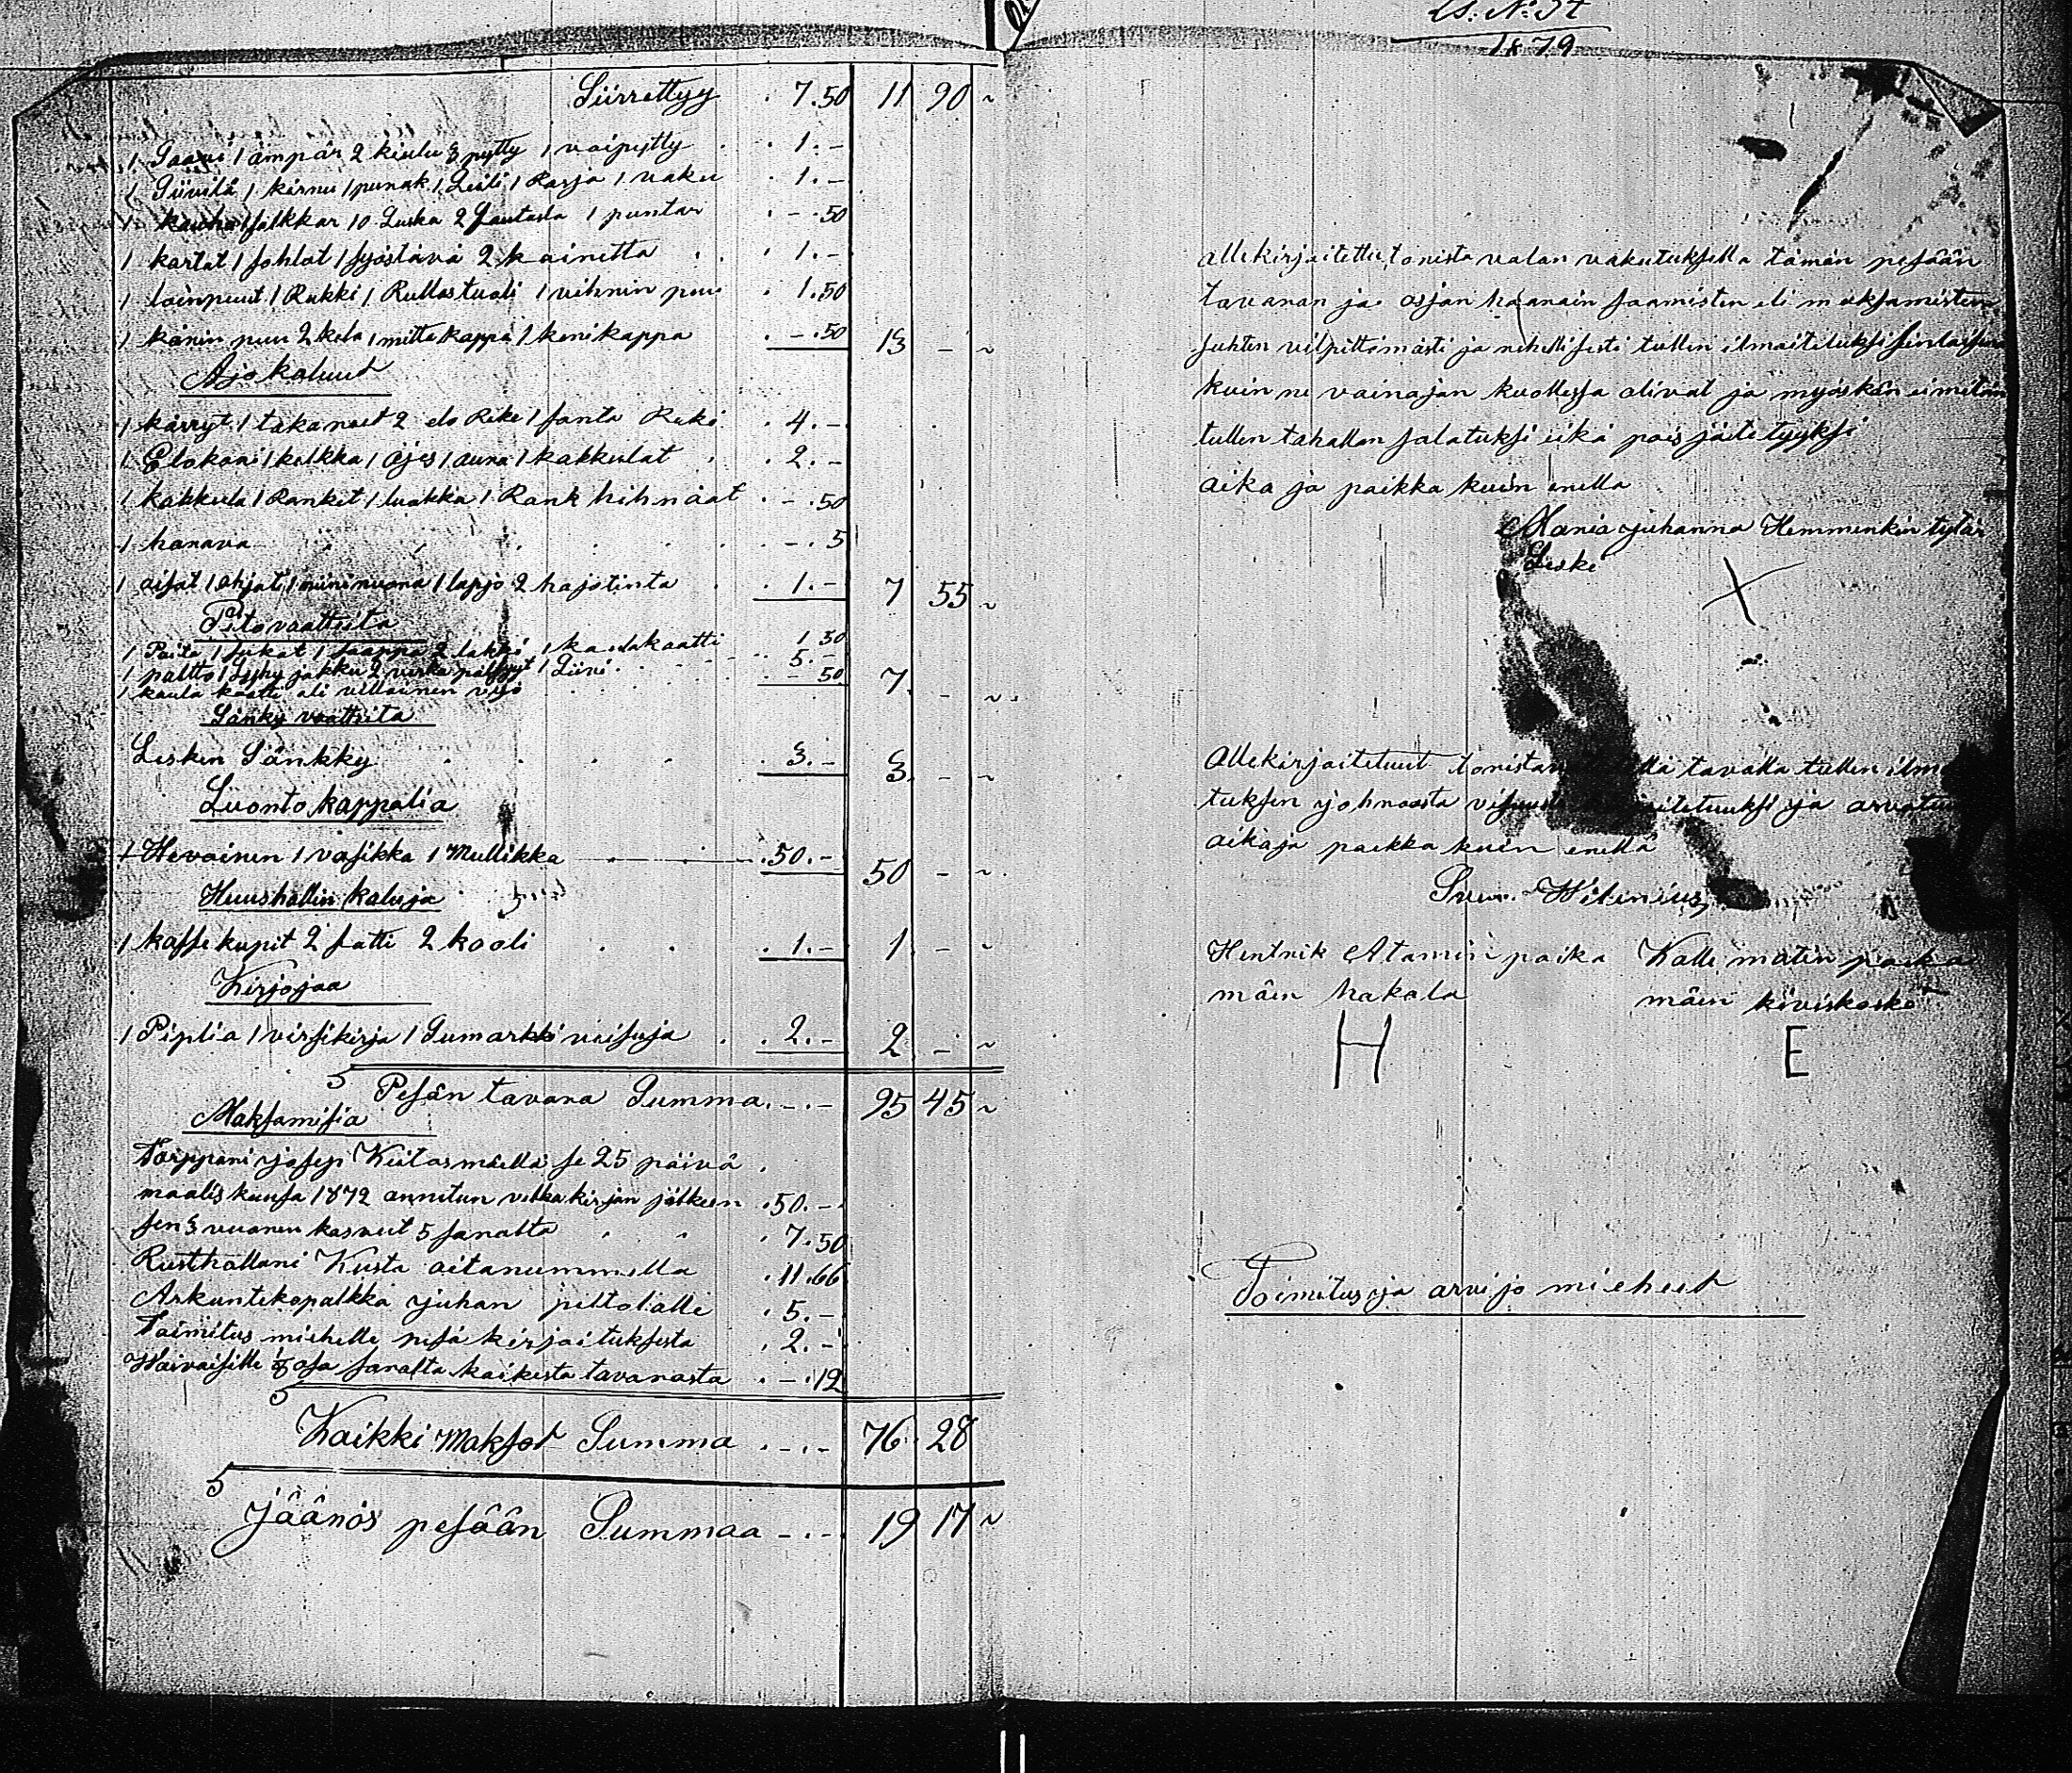 Siirrettyy . 7.50 11 90 ~
1 Saavi 1 ämpär 2 kiulu 3 pytty 1 voipytty . . 1.-
1 Siivilä 1 kirnu 1 punak 1 Leili 1 Rasja 1 vaku . 1.-
1 kauha 1 falkkar 10 Luska 2 Lautasta 1 puntar . -.50
1 kartat 1 fohlot 1 fyöstävä 2 kainetta . . 1.-
1 loinpuut 1 Rukki 1 Rullastuoli 1 vihnin puu . 1.50
1 känin puu 2 kela 1 mitta kappa 1 kenikappa . -.50 13 - ~
Ajo kaluut
1 kärryt 1 takanaet 2 elo Reke 1 fanta Reki . 4.-
1 Elokoni 1 kelkka 1 äjes 1 aura 1 kakkulat . . 2.-
1 kakkula 1 Rankit 1 luokka 1 Rank hihnaat . -.50
1 harava . . . . . -.5
1 aifat 1 ohjat 1 1 lapjo 2 hajotinta . . 1.- 7 55 ~
Pitovaatteita
1 Paita 1 fukat 1 faappa 2 lakki 1 kaulakaatti 1 50
1 paltto 1 Lyhy jakku 2 1 Liivi . . 5.-
1 kaula kaatti eli villainen vyö . . -.50 7. - ~.
Sänky vaatteita
Lesken Sänkky . . . . . 3.- 3. - ~
Luonto kappalia
1 Hevoinen 1 vasikka 1 Mullikka .50.- 50 - ~.
Huushallin kaluja
1 kaffe kupit 2 fatti 2 kooli . . . 1.- 1. - ~
Kirjojaa
1 Piplia 1 virsikirja 1 Sumarkki veisuja . . 2.- 2. - ~
S Pesän tavara Summa.-.- 95 45 ~
Maksamisia
Torppari Josepi Kiitosmäellä se 25 päivä .
maaliskuusa 1872 annitun velkakirjan jälkeen .50.-.
sen 3 vuoren kasvut 5 sanalta . . . 7.50
Rusthollari Kusta aitanummella .11.66
Arkuntekopalkka Juhan peltolalle . 5.-
Toimitus miehelle pesä kirjoituksesta . 2.-
Waivaisille osa sanalta kaikesta tavarasta . -.12
S Kaikki Maksot Summa .-.- 76. 28
S Jäänös pesään Summaa -.- 19 17 ~
№ 54
1879
allekirjoitettu, tonista valan vakutuksella tämän pesään
tavaran ja osjan haanain saamisten eli maksamisten
suhten vilpittömästi ja rehellisesti tullen ilmoiteluksi
kuin ne vainajan kuollessa olivat ja myöskän ei mitän
tullen tahallan salatuksi eikä pois jätetyyksi
aika ja paikka kuin enella
Maria Juhanna Hemminkin tytär
Leski X
Allekirjoitetuut tonistan tavalla tullen
tuksen johnoosta ja
aika ja paikka kuin enellä
Hentrik Atamin poika Kalle matin poika
mäen hakala mäen kiviskoski
H E
Toimitus ja arvijo mieheet